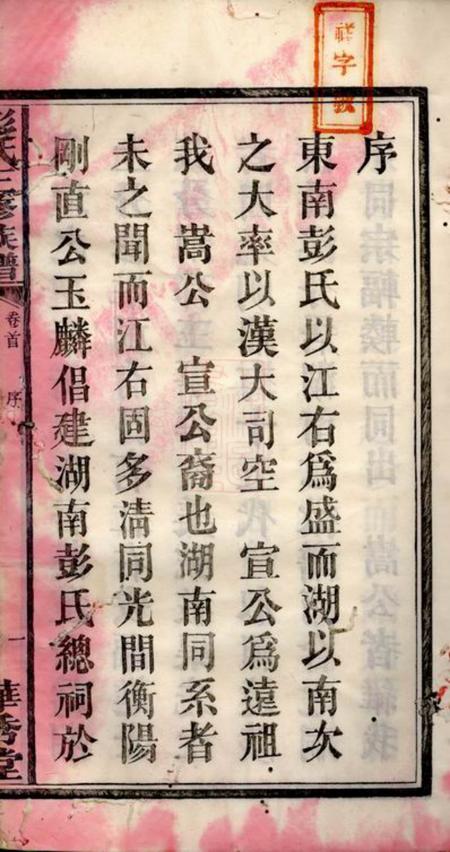 序
東南彭氏以江右為盛而湖以南次
之大率以漢大司空 宣公為遠祖
我 嵩公 宣公裔也湖南同系者
未之聞而江右固多清同光間衡陽
剛直公玉麟倡建湖南彭氏總祠於
彭氏三修族譜
卷首
序
一
華秀堂